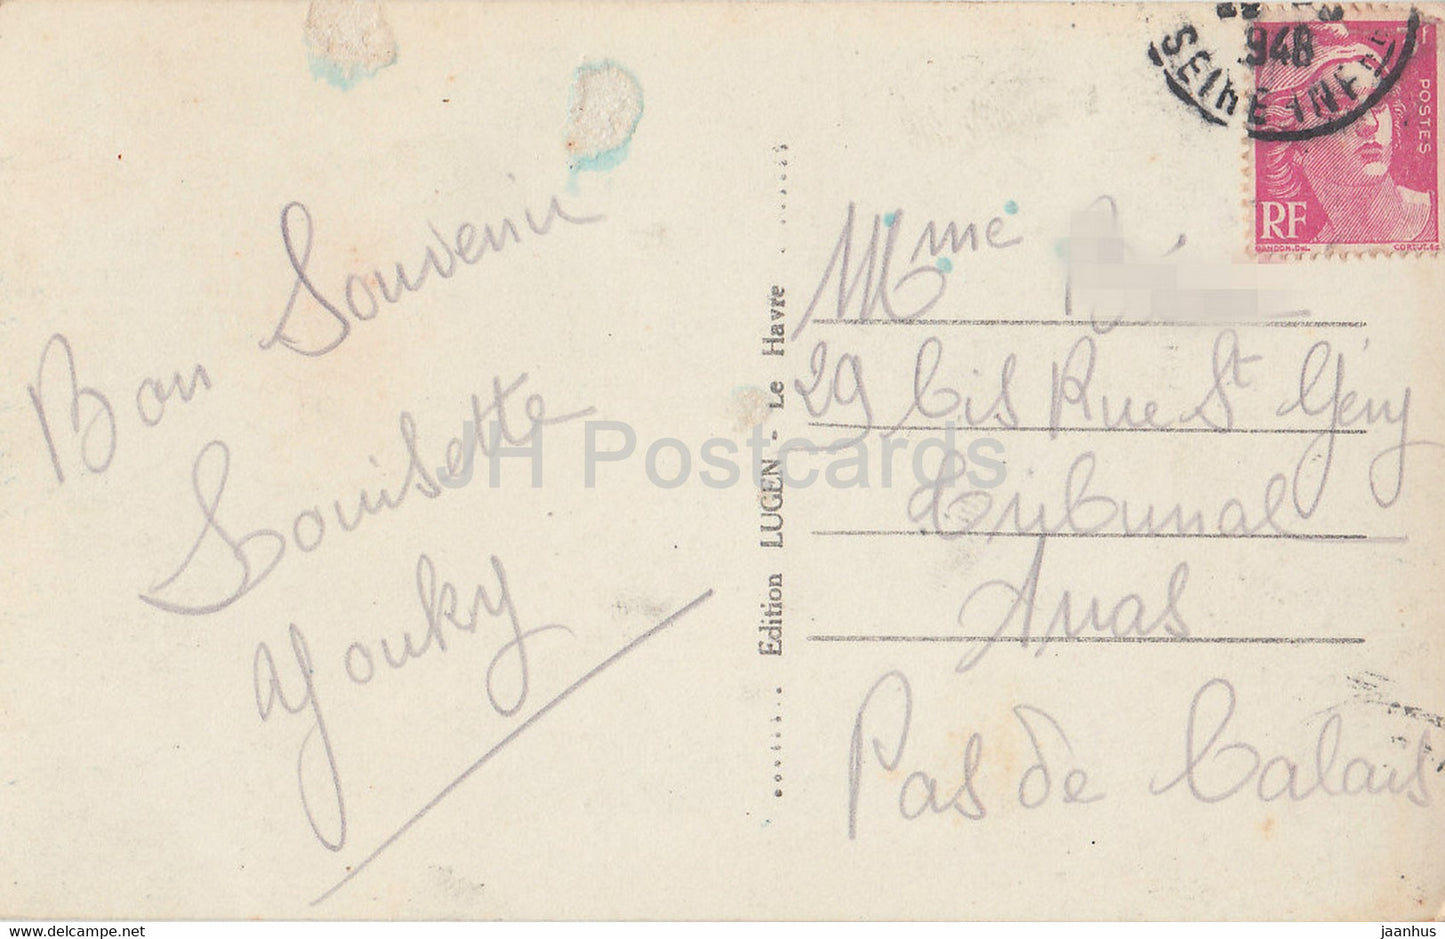 Bon Souvenir
Louisette
Youky
Edition LUGEN - Le Havre
Mme
29 bis Rue St Géry
Tribunal
Arras
Pas de Calais
948
SEINE INF
POSTES
RF
GANDON.DEL
CORTOT.SC
JH Postcards
www.hippostcard.com
jaanhus